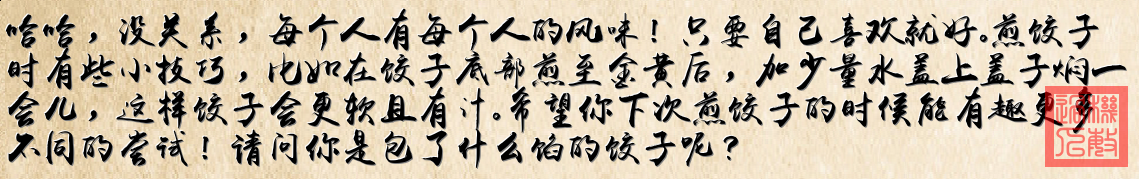 哈哈，没关系，每个人有每个人的风味！只要自己喜欢就好。煎饺子
时有些小技巧，比如在饺子底部煎至金黄后，加少量水盖上盖子焖一
会儿，这样饺子会更软且有汁。希望你下次煎饺子的时候能有趣更多
不同的尝试！请问你是包了什么馅的饺子呢？